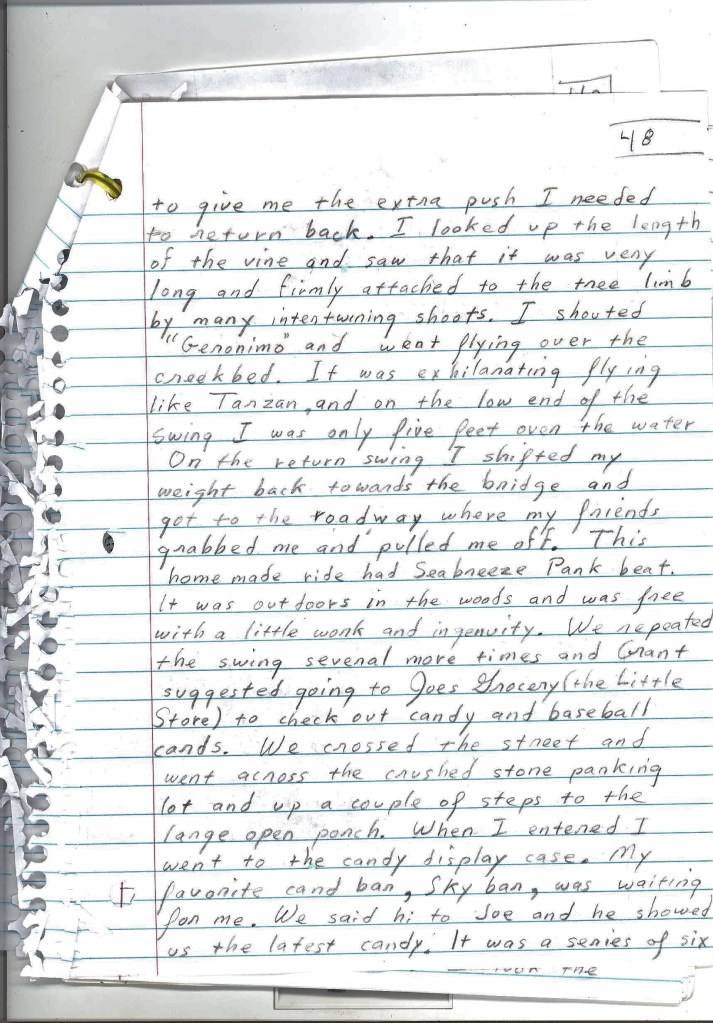 48
to give me the extra push I needed
to return back. I looked up the length
of the vine and saw that it was very
long and firmly attached to the tree limb
by many intertwining shoots. I shouted
"Geronimo" and went flying over the
creekbed. It was exhilarating flying
like Tarzan, and on the low end of the
swing I was only five feet over the water
On the return swing I shifted my
weight back towards the bridge and
got to the roadway where my friends
grabbed me and pulled me off. This
home made ride had Seabreeze Park beat.
It was outdoors in the woods and was free
with a little work and ingenuity. We repeated
the swing several more times and Grant
suggested going to Joes Grocery (the Little
Store) to check out candy and baseball
cards. We crossed the street and
went across the crushed stone parking
lot and up a couple of steps to the
large open porch. When I entered I
went to the candy display case. My
favorite cand bar, Sky bar, was waiting
for me. We said hi to Joe and he showed
us the latest candy. It was a series of six
the